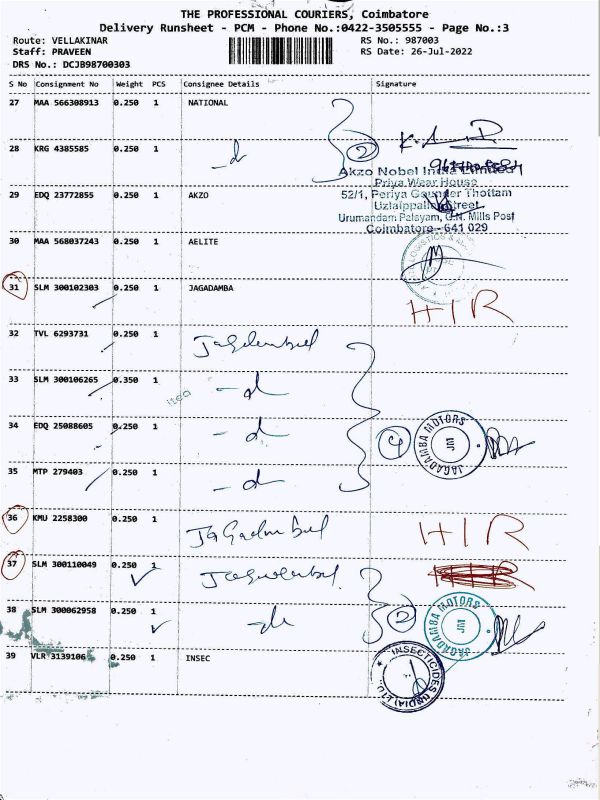 THE PROFESSIONAL COURIERS, Coimbatore
Delivery Runsheet - PCM - Phone No.:0422-3505555 - Page No.:3
Route: VELLAKINAR RS No.: 987003
Staff: PRAVEEN RS Date: 26-Jul-2022
DRS No.: DCJB98700303
S No Consignment No Weight PCS Consignee Details Signature
27 MAA 566308913 0.250 1 NATIONAL
28 KRG 4385585 0.250 1 -d 2
Akzo Nobel India Limited
Priya Wear House
29 EDQ 23772855 0.250 1 AKZO 52/1, Periya Gounder Thottam
Street
Urumandam Palayam, G.N. Mills Post
Coimbatore - 641 029
30 MAA 568037243 0.250 1 AELITE
31 SLM 300102303 0.250 1 JAGADAMBA HIR
32 TVL 6293731 0.250 1
33 SLM 300106265 0.350 1 -d
34 EDQ 25088605 0.250 1 -d 4 JAGADAMBA MOTORS JM
35 MTP 279403 0.250 1 -d
36 KMU 2258300 0.250 1 HIR
37 SLM 300110049 0.250 1
38 SLM 300062958 0.250 1 2 JAGADAMBA MOTORS JM
39 VLR 3139106 0.250 1 INSEC INSECTICIDES (INDIA) LTD.